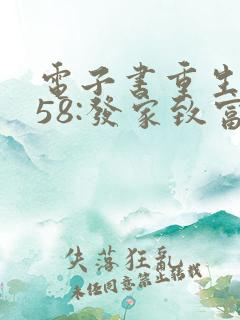 電子書重生
58:發家致富
失落狂亂
未經同意禁止轉載